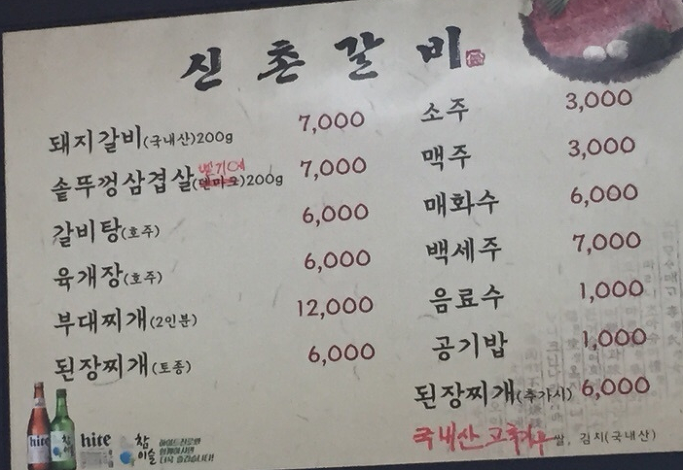 신촌갈비
돼지갈비(국내산)200g 7,000
솥뚜껑삼겹살(덴마크)200g 7,000
벨기에
갈비탕(호주) 6,000
육개장(호주) 6,000
부대찌개(2인분) 12,000
된장찌개(토종) 6,000
소주 3,000
맥주 3,000
매화수 6,000
백세주 7,000
음료수 1,000
공기밥 1,000
된장찌개(추가시) 6,000
국내산 고추가루 쌀, 김치(국내산)
hite
hite
참이슬